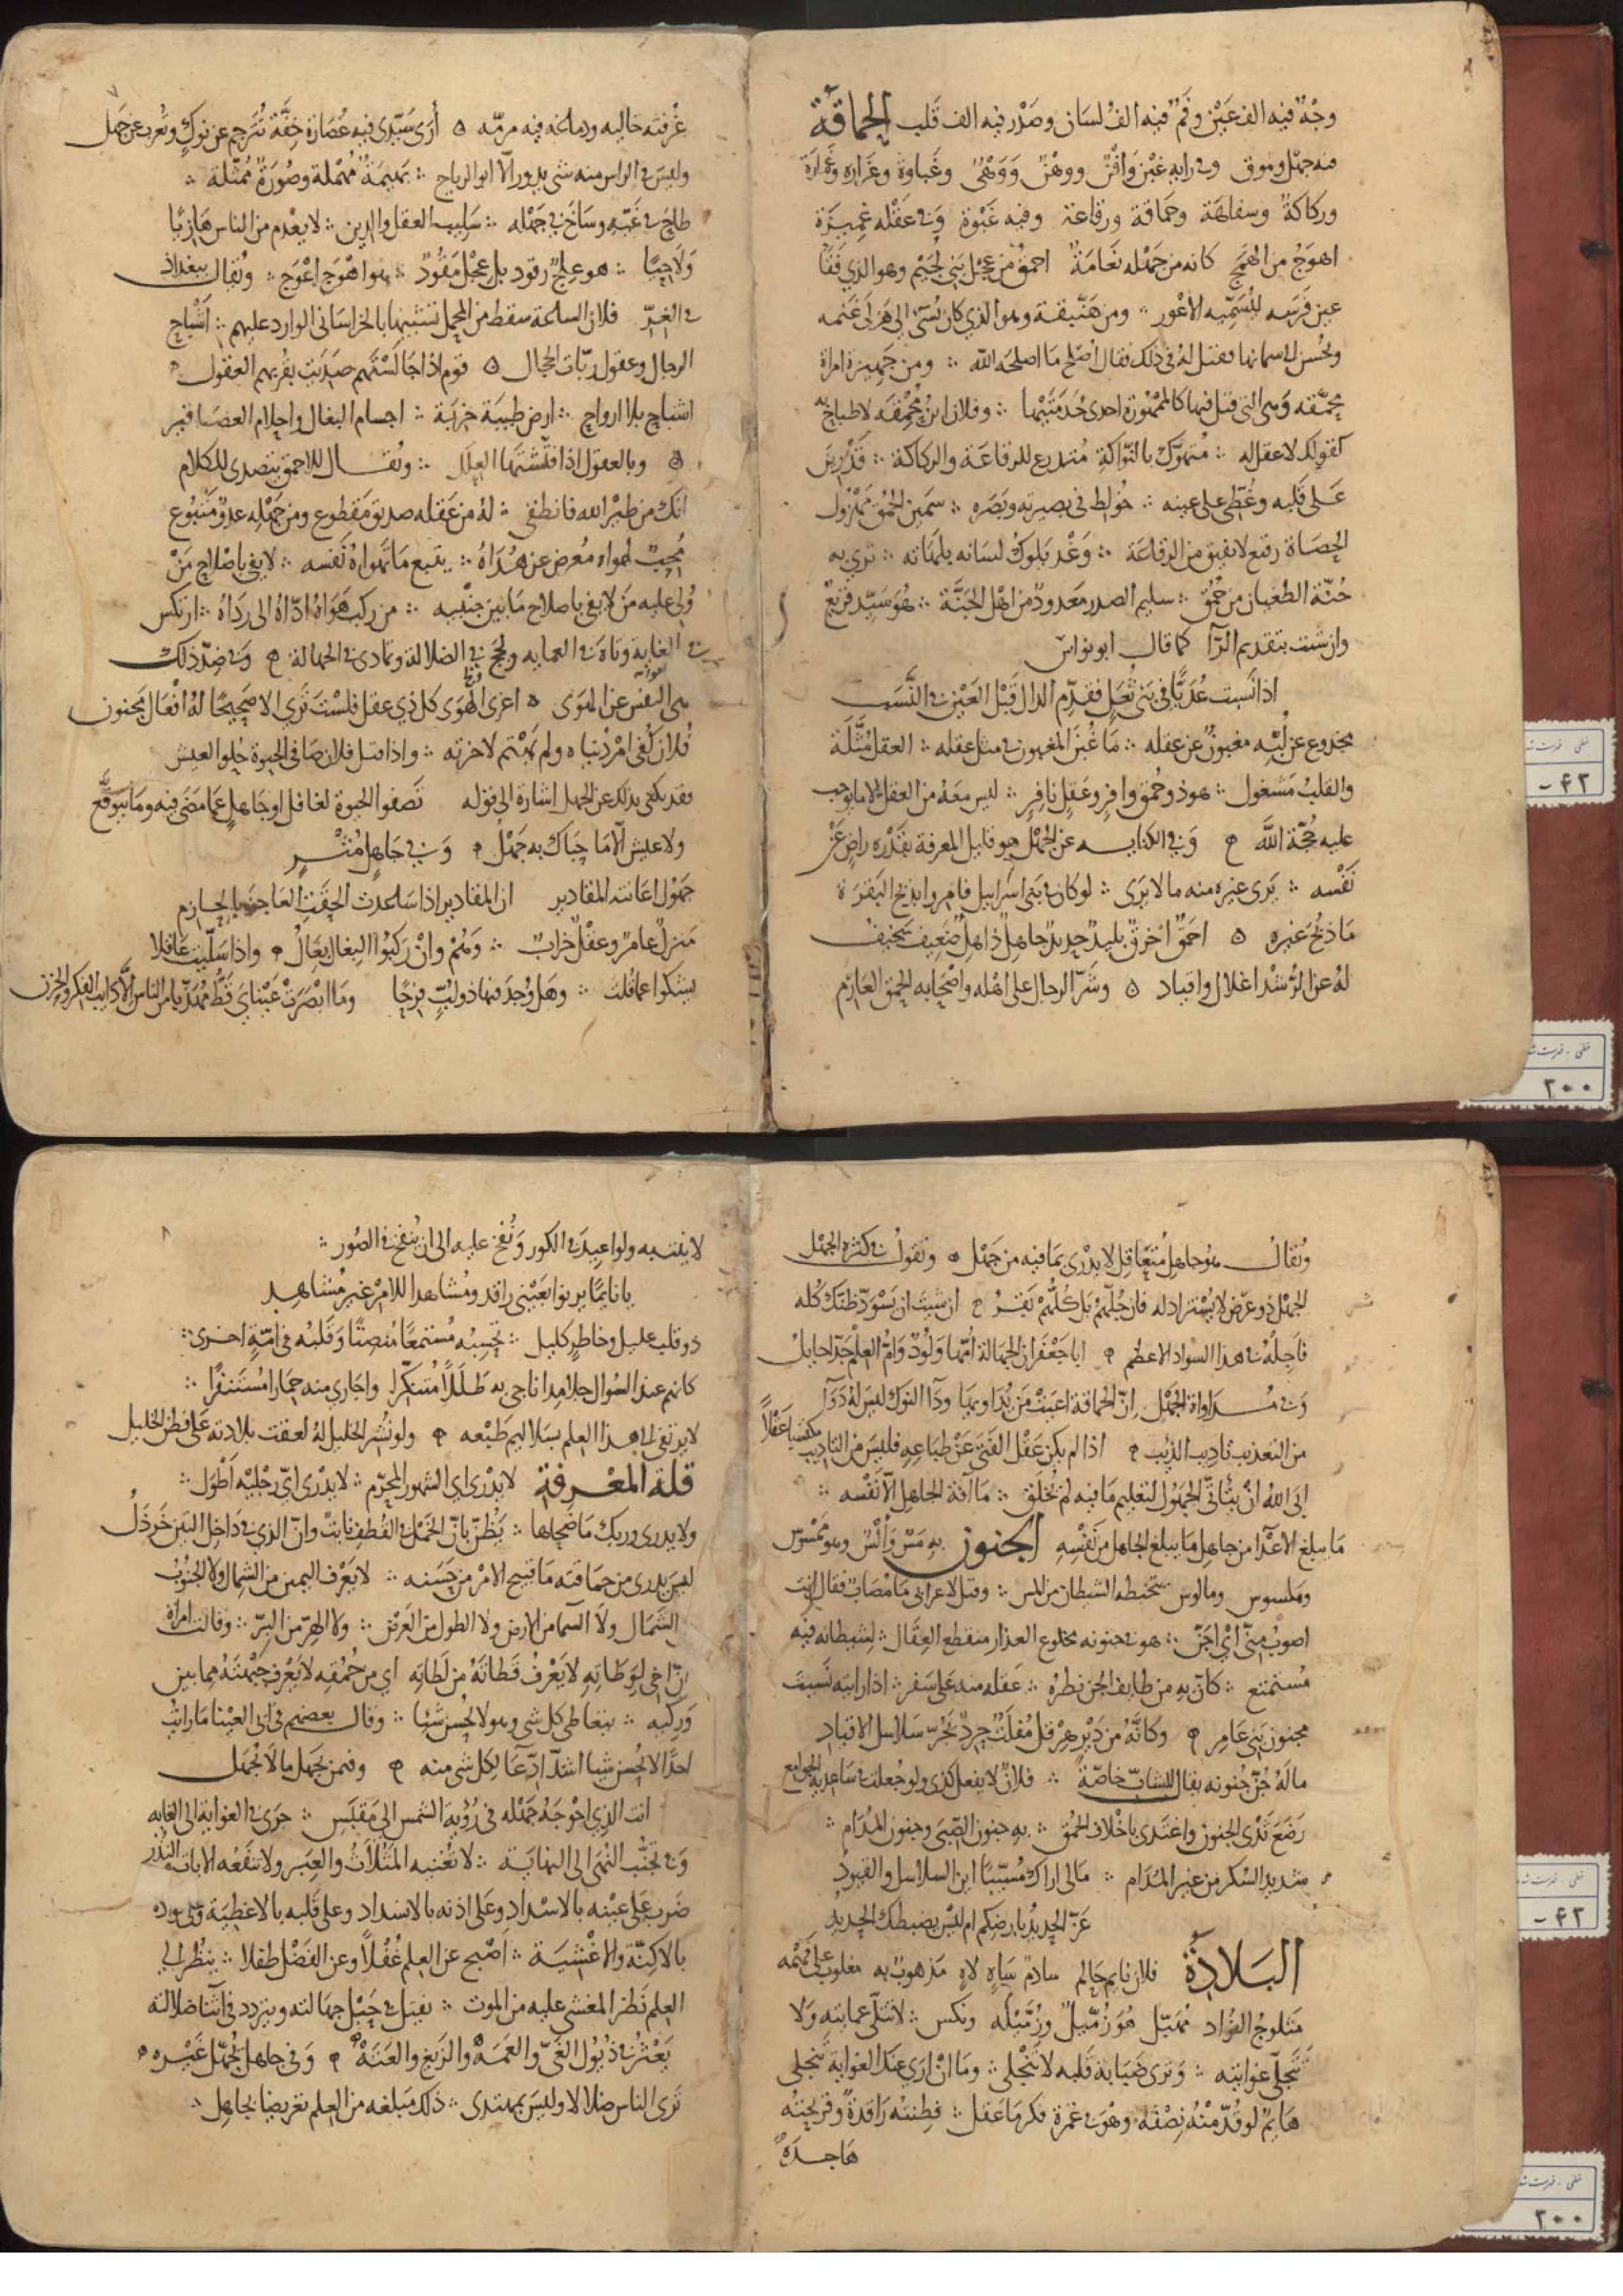 وجْهٌ فيه الف عَيْن وفَمٌ فيه الفُ لسَان وصَدْر فيه الف قَلب الحماقة
منه جهل وموق وفى رايه غبْن وَافْن ووهْن وَوَهْى وغَباوة وغَراره وغَمارَة
وركاكة وسفاهَة وحماقة ورقاعة وفيه غَبْوة وفى عَقْله غميزة
اهوَجُ من الهَمج كانه من جَهْله نَعامَة احمقُ من عِجْل بَنى لُجَيْم وهو الذي فَقَأ
عين فَرَسه ليُسَمّيه الأعْور ومن هَبَنّقة وهو الذي كان يُسئ الى هزلى غنمه
ويُحسن الى سمانها فقيل لهُ فى ذلك فقال اُصْلح مَا اصلحَه اللّه ومن جَهيزة امراة
مُحمّقه وهى التى قيل فيها كالممهُورة احدى خَدَمَتَيْها وفلان ابنُ مُحْمِقَه لا طباخ به
كقولك لا عقل له مُتهوّك بالنّواكَةِ مُتدرع للرقاعَة والركاكة قَدْ رِينَ
عَلى قَلبه وغُطّى على عينه خُولط فى بصيرته وبَصَره سَمِين الحُمْق مَهْزول
الحصَاة رقيع لا يفيق من الرقاعَة وَغْد يَلوكُ لسَانه بلهَاته تري به
جُنّة الطغيان من حُمْق سليم الصدر مَعدودٌ من اهْل الجنَّة هُوَ سَيّد قريع
وان شئت بتقديم الرّآ كما قال ابو نواس
اذا نَسبت عُديًّا فى بَنى ثُعَلٍ فقدّم الدال قَبْل العَيْن فى النَّسَب
مخدوع عن لُبّه مغبونٌ عن عقله مَا غُبنَ المغبون فى مثل عقله العقل مُثَلَّة
والقلبُ مَشغول هو ذو حُمق وافِر وعَقلٍ نافِر ليس مَعهُ من العقل الا ما يوجب
عليه حُجّة اللّه وَفى الكنايـة عن الجهْل هو قليل المعرفة بقَدْره راضٍ عَنْ
نَفْسه يَرى غيره منه ما لا يَرَى لو كان فى بنى اسْرايل فامروا بذبح البَقَرَة
مَا ذبحُ غيره احمَقُ اخرقُ بليدٌ حديدٌ جاهلٌ ذاهلٌ ضَعِيف سَخيف
لهُ عن الرُّشْد اغلال واقياد وشَرّ الرجال على اهْله واصْحَابه الحمق العارم
غُرْفته خاليه ودماغه فيه مرمّه أرَى سَيّدى فيه عُصَارة خِفَّة تُترجم عن نوكٍ وتُعرب عن جَهْل
وليسَ فى الراس منه شى يدور الّا ابو الرياح بَهيمَةٌ مُهْملة وصُورَةٌ مُمثّلة
طلح فى غَيّه وسَاخَ فى جَهْله سَليب العقل والدين لا يعْدم من الناس هَازئًا
وَلاجيًا هو عِلجٌ رقود بل عِجلٌ مَقُودٌ هو اهْوَج اعْوَج ويُقال ببغداذ
فى الغـرّ فلان الساعة سقط من المحمل تشبيها بالخراسَانى الوارد عليهم اَشْباح
الرجال وعقول ربّات الحجال قوم اذا جَالَسْتَهم صَدِئَت بقُربهم العقول
اشباح بلا ارواح ارض طيبَة خربَة اجسام البغال واحلام العصَافير
وبالعقول اذا فتّشتَها العِلَل ويُقـال للاحمق يتصدى للكلام
انكَ من طيْر الله فانطقى لهُ من عَقله صديق مَقطوع ومن جَهْله عدوّ مَتْبُوع
مُجيبٌ لهواه مُعرض عن هُدَاهُ يتبع مَا تَهواهُ نَفسه لا يفى باصْلاح مَنْ
وُلى عليه مَن لا يفى باصلاح مَا بَين جنْبيه من ركب هَوَاهُ ادّاهُ الى رَدَاهُ ارتكس
فى الغَايه وتاهَ فى العمايه ولجَج فى الضلالة وتمادى فى الجهالة وَفى ضدّ ذلك
نهى النفس عن الهَوى اعزى الهَوَى كل ذي عقل فلسْتَ تَرى الا صَحيحًا لهُ افْعَال مجنون
فُلان كُفى امْر دنياه ولم يَهْتم لاخرته واذا قيل فلان صَافى الحيوة حلو العيش
فقد يكنى بذلك عن الجهل اشارة الى قوله تَصفوا الحيوة لغافل او جَاهلٍ عمّا مَضَى فيه وما يُتوقَّع
ولا عيش الّا مَا حَباكَ به جَهْل وَفى جَاهلٍ مُثْرٍ
جهول اعانته المقادير ان المقادير اذا سَاعدت الحقَت العَاجزَ بالحازم
مَنزلٌ عامرٌ وعقلٌ خرابٌ وَهُمْ وانْ رَكبُوا البِغال بغال واذا سَألت عَاقلا
يشكوا عاقلٌ وهَل يوُجدَ فيها ذو لُبٍّ فَرِحًا ومَا ابْصَرَتْ عَيْناى قَطّ مُهَذّبا من الناس الّا دايب الفكر والحزن
ويُقالُ هُو جاهل مُتعَاقل لا يدْرى بمَا فيه من جَهْل ويَقولُ فى كثرة الجهْل
الجهْل ذو عرْض لا يُستزاد له فان جُلّهمْ بَل كُلُّهمْ بَقـرُ ان شئت ان يَسْوَدّ ظنّك كُله
فاَجِلْهُ فى هذا السواد الاعظم ابا جَعْفَر ان الجهالة اُمّها وَلُودٌ وَامُّ العِلم جَدّاءُ حايلُ
وَفى مُـداواة الجَهْل اِنّ الحماقة اعيَتْ مَن يُدَاويها ودآ النوك ليسَ لهُ دَوَآ
من التعذيب تاديب الذيب اذا لم يكن عَقْل الفَتى عَنْ طباعِه فليسَ من التاديب مكتسبا عَقْلًا
ابَى اللهُ انْ يتأتّى الجهُول لتعليم مَا فيه لمْ يُخلَق مَا آفة الجَاهل الّا نَفْسه
مَا يبلغ الاعْدآ من جاهِل مَا يَبلغ الجاهل من نَفْسِهِ الجنون بهِ مَسّ وَأَلْسٌ وهو مَمْسُوسٌ
وملسوس ومالوس يتخبطه الشيطان من المس وقيل لاعرابى مَا مُصَابٌ فقال انت
اصوبُ منّى اىْ اجنّ هو فى جنونه مخلوع العذار منقطع العِقال لشيطانه فيه
مُستمتع كانّ به من طايف الجن نظرةً عَقله منه عَلى سَفر اذا رايتَه نَسيتَ
مجنون بَنى عَامِر وكانَّهُ من دَيْر هزْقل مُفلتٌ حرِدٌ يَجُرّ سَلاسل الاقياد
ما لَهُ جُنَّ جُنونه يقال للشابّ خاصّةً فلانٌ لا يفعل كذى ولو جُعلت فى سَاعديه الجوامع
رَضَعَ ثَدْى الجنون واغتَدى باخْلاف الحُمْق به جنون الصّبَى وجنون المُدَام
شديد السُكر من غير المُدَام مَالى اراكَ مُسَيّبًا اين السلاسل والقيودُ
عَزّ الحديدُ بارضكم ام ليْسَ يضبطك الحديدُ
البَلادَةُ فلان نايم حَالم سادمٌ سَاهٍ لاهٍ مَذهوبٌ به مغلوب على فَهْمه
مَثلوجُ الفُؤاد مُهَبّل هُوَ زُمّيلٌ وزُمَّيْلَه ونكس لا تتلّى عمايته وَلا
تَتجلّى غوايته وَترى ضَبابة قَلبه لا تَنْجلى ومَا انْ ارَى عَنكَ الغوايةَ تَنجلى
هَايمٌ لو قُدّ مَنْهُ نِصْفه وهْوَ فى غَمْرة فكرٍ مَا عَقل فطنته رَاقدةٌ وقريحتُه
هَاجـدَةٌ
لا ينتبه ولو اعيدَ فى الكور وَنُفخ عليه الى ان يُنفخ فى الصُور
يا نايمًا يرنوا بعَيْنى راقد ومُشاهدا للامْر غيرَ مُشاهـد
ذو قلب عليل وخاطر كليل تَحسِبُه مُستمعًا مُنصِتًا وقلبُه فى امّةٍ اخـرى
كانهم عند السُوال جلامد اناجى به طـلَلًا مُتنكّرًا واجَارى منه حِمَارا مُستَنفرًا
لا يرتقى الى هـذا العلم بسَلاليم طَبْعه ولو نُشر الخليل لهُ لعفت بلادته عَلى فطن الخليل
قلة المعْـرفة لا يدْرى اى الشهور المحرّم لا يدْرى اىّ رجْليْه اطْول
ولا يدرى وربك مَا ضُحاها يَظُنّ بانّ الخمْل فى القُطفِ نابتٌ وانّ الذي فى دَاخل التين خَرْدَلُ
ليسَ يدرى من حمَاقته مَا قبيح الامْر من حَسَنه لا يَعْرف اليمين من الشِمال ولا الجنُوب
الشَمَال ولا السمآ من الارض ولا الطول من العَرض ولا الهِرّ من البِرّ وقالت امراة
اِنّ اخى لِوَطَاتِهِ لا يَعْرفُ قَطاتَهُ من لَطَاتِه اي من حُمْقه لا يَعْرف جَبْهتَهُ مما بين
وَرِكَيه يتعاطى كل شى وهو لا يُحْسنُ شيْئا وقال بعضهم فى ابى العيْنا مَا رايتُ
احدًا لا يُحْسن شيئا اشدّ ادّعَآ لكل شى منه وفمن يجهل ما لا يُجْهَل
انت الذي احْوَجَهُ جَهْله فى رُؤية الشمس الى مَقبَس جرَى فى الغوايه الى الغايه
وَفى تجنُّب النُهى الى النهايَة لا تُغنيه المَثُلَاتُ والعِبَر ولا تنفَعُه الايات والنُذُر
ضَرب عَلى عيْنه بالاسْدادِ وعَلى اذنه بالانسداد وعلى قَلبه بالاغطية
بالاكِنّة والاغْشيَـة اَصْبح عن العلم غُفْلًا وعن الفَضْل طفلا ينظر الى
العلم نَظرَ المغشى عليه من الموت يقيَل فى جَبَل جهالته ويتردد فى آثنا ضلالته
يَعْثرُ فى ذُيُول الغَىّ والعَمَه والزَيغ والعَتَهْ وَفى جاهلٍ يُجَهّل غَيْـره
تَرى الناس ضلالا وليسَ بمهتدى ذلك مَبلغه من العلم تعريضا بجاهل
خطى - فهرست شده
- ۴۲
خطى - فهرست شده
۲۰۰
خطى - فهرست شده
- ۴۲
خطى - فهرست شده
۲۰۰